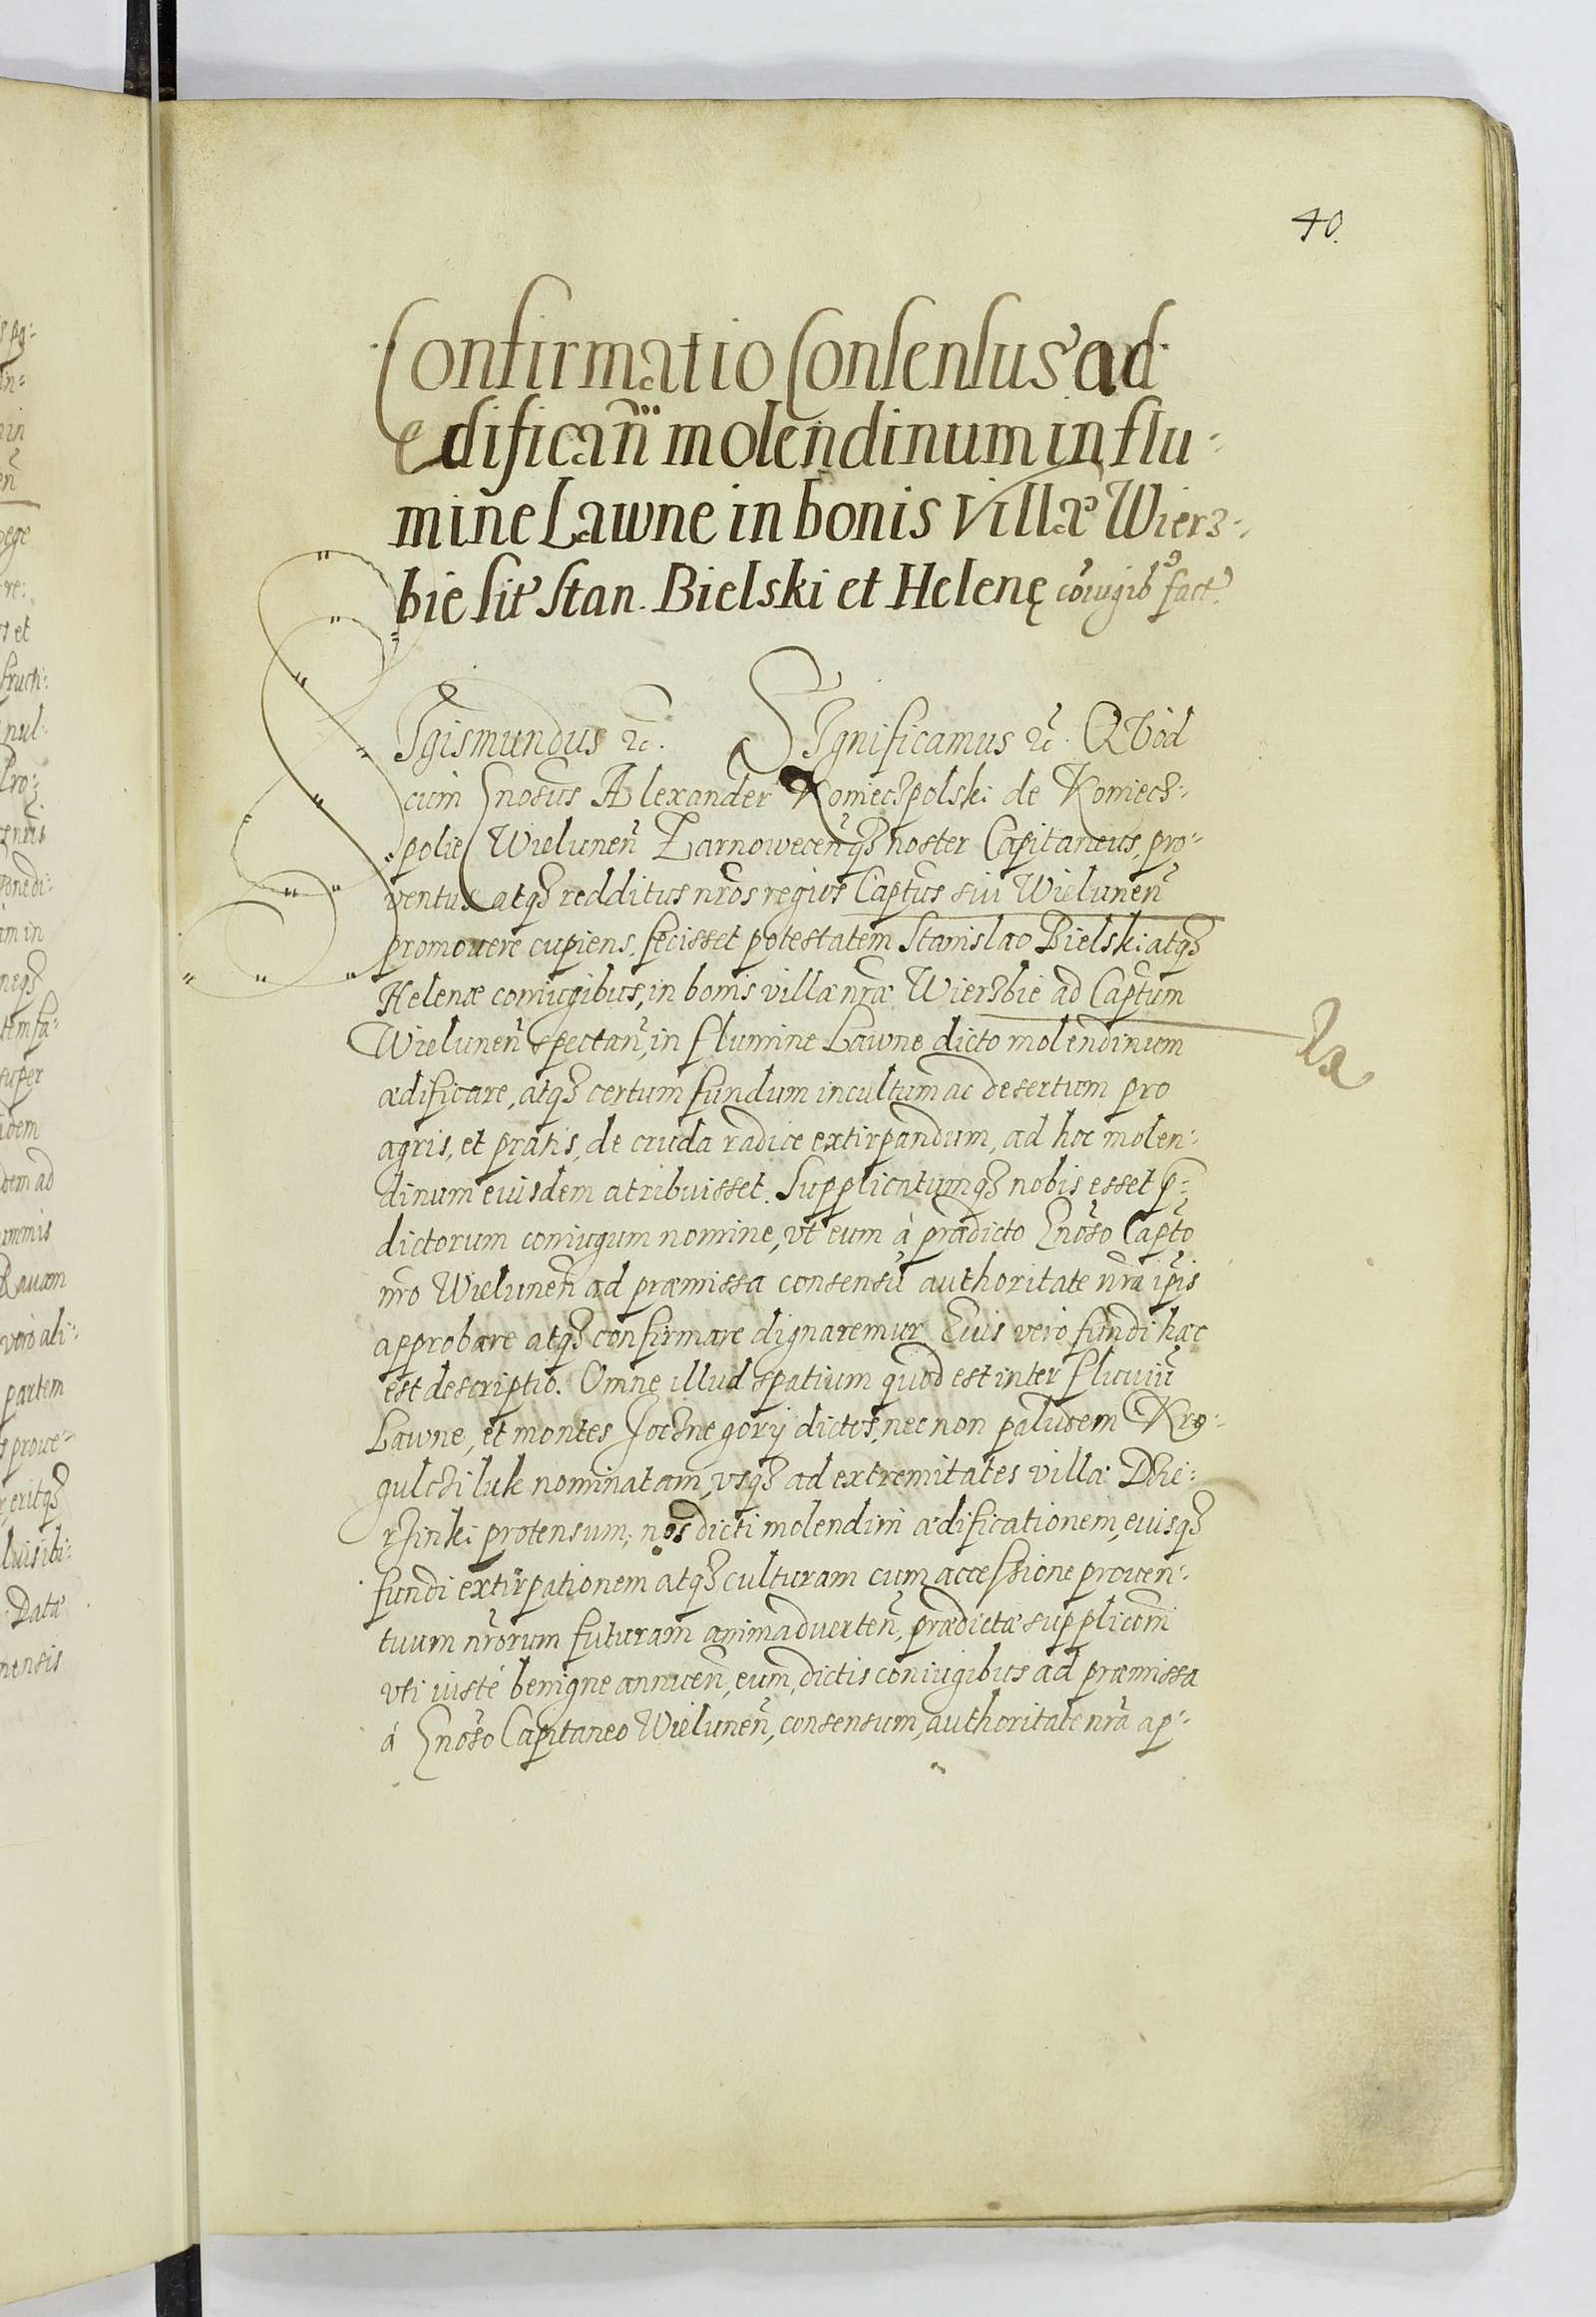 40.
Confirmatio Consensus ad
edifican̄ molendinum in flu-
mine Lawne in bonis villæ Wierz-
bie sit Stan. Bielski et Helenę cōiugib9 fact
SIgismundus &c. SIgnificamus &c. QVòd
cum Gnosus Alexander Konieczpolski de Koniecz-
polie Wielunen̄ Zarnowecen̄q3 noster Capitaneus, pro-
ventus atq3 redditus nr̄os regios Captūs sui Wielunen̄
promouere cupiens. fecisset potestatem Stanislao Bielski atq3
Helenæ coniugibus, in bonis villæ nr̄æ Wierzbie ad Captūm
Wielunen̄ spectan̄, in flumine Lawne dicto molendinum
ædificare, atq3 certum fundum incultum ac desertum pro
agris, et pratis, de cruda radice extirpandum, ad hoc molen-
dinum euisdem atribuisset. Supplicatumq3 nobis esset p̄-
dictorum coniugum nomine, vt eum à prædicto Gnoso Captō
nr̄o Wielunen̄ ad præmissa consensū authoritate nr̄a ip̄is
approbare atq3 confirmare dignaremur. Euis vero fundi hæc
est descriptio. Omne illud spatium quod est inter fluuiū
Lawne, et montes Joczne gorÿ dictos, nec non paludem Kro-
gulczi luk nominatam, vsq3 ad extremitates villæ Dzie-
rzinki protensum; nos dicti molendini ædificationem, euisq3
fundi extirpationem atq3 culturam cum accessione prouen-
tuum nr̄orum futuram animaduerten̄, prædictæ supplicōni
vti iustè benigne annuen̄, eum, dictis coniugibus ad præmissa
á Gnoso Capitaneo Wielunen̄, consensum, authoritate nr̄a ap-